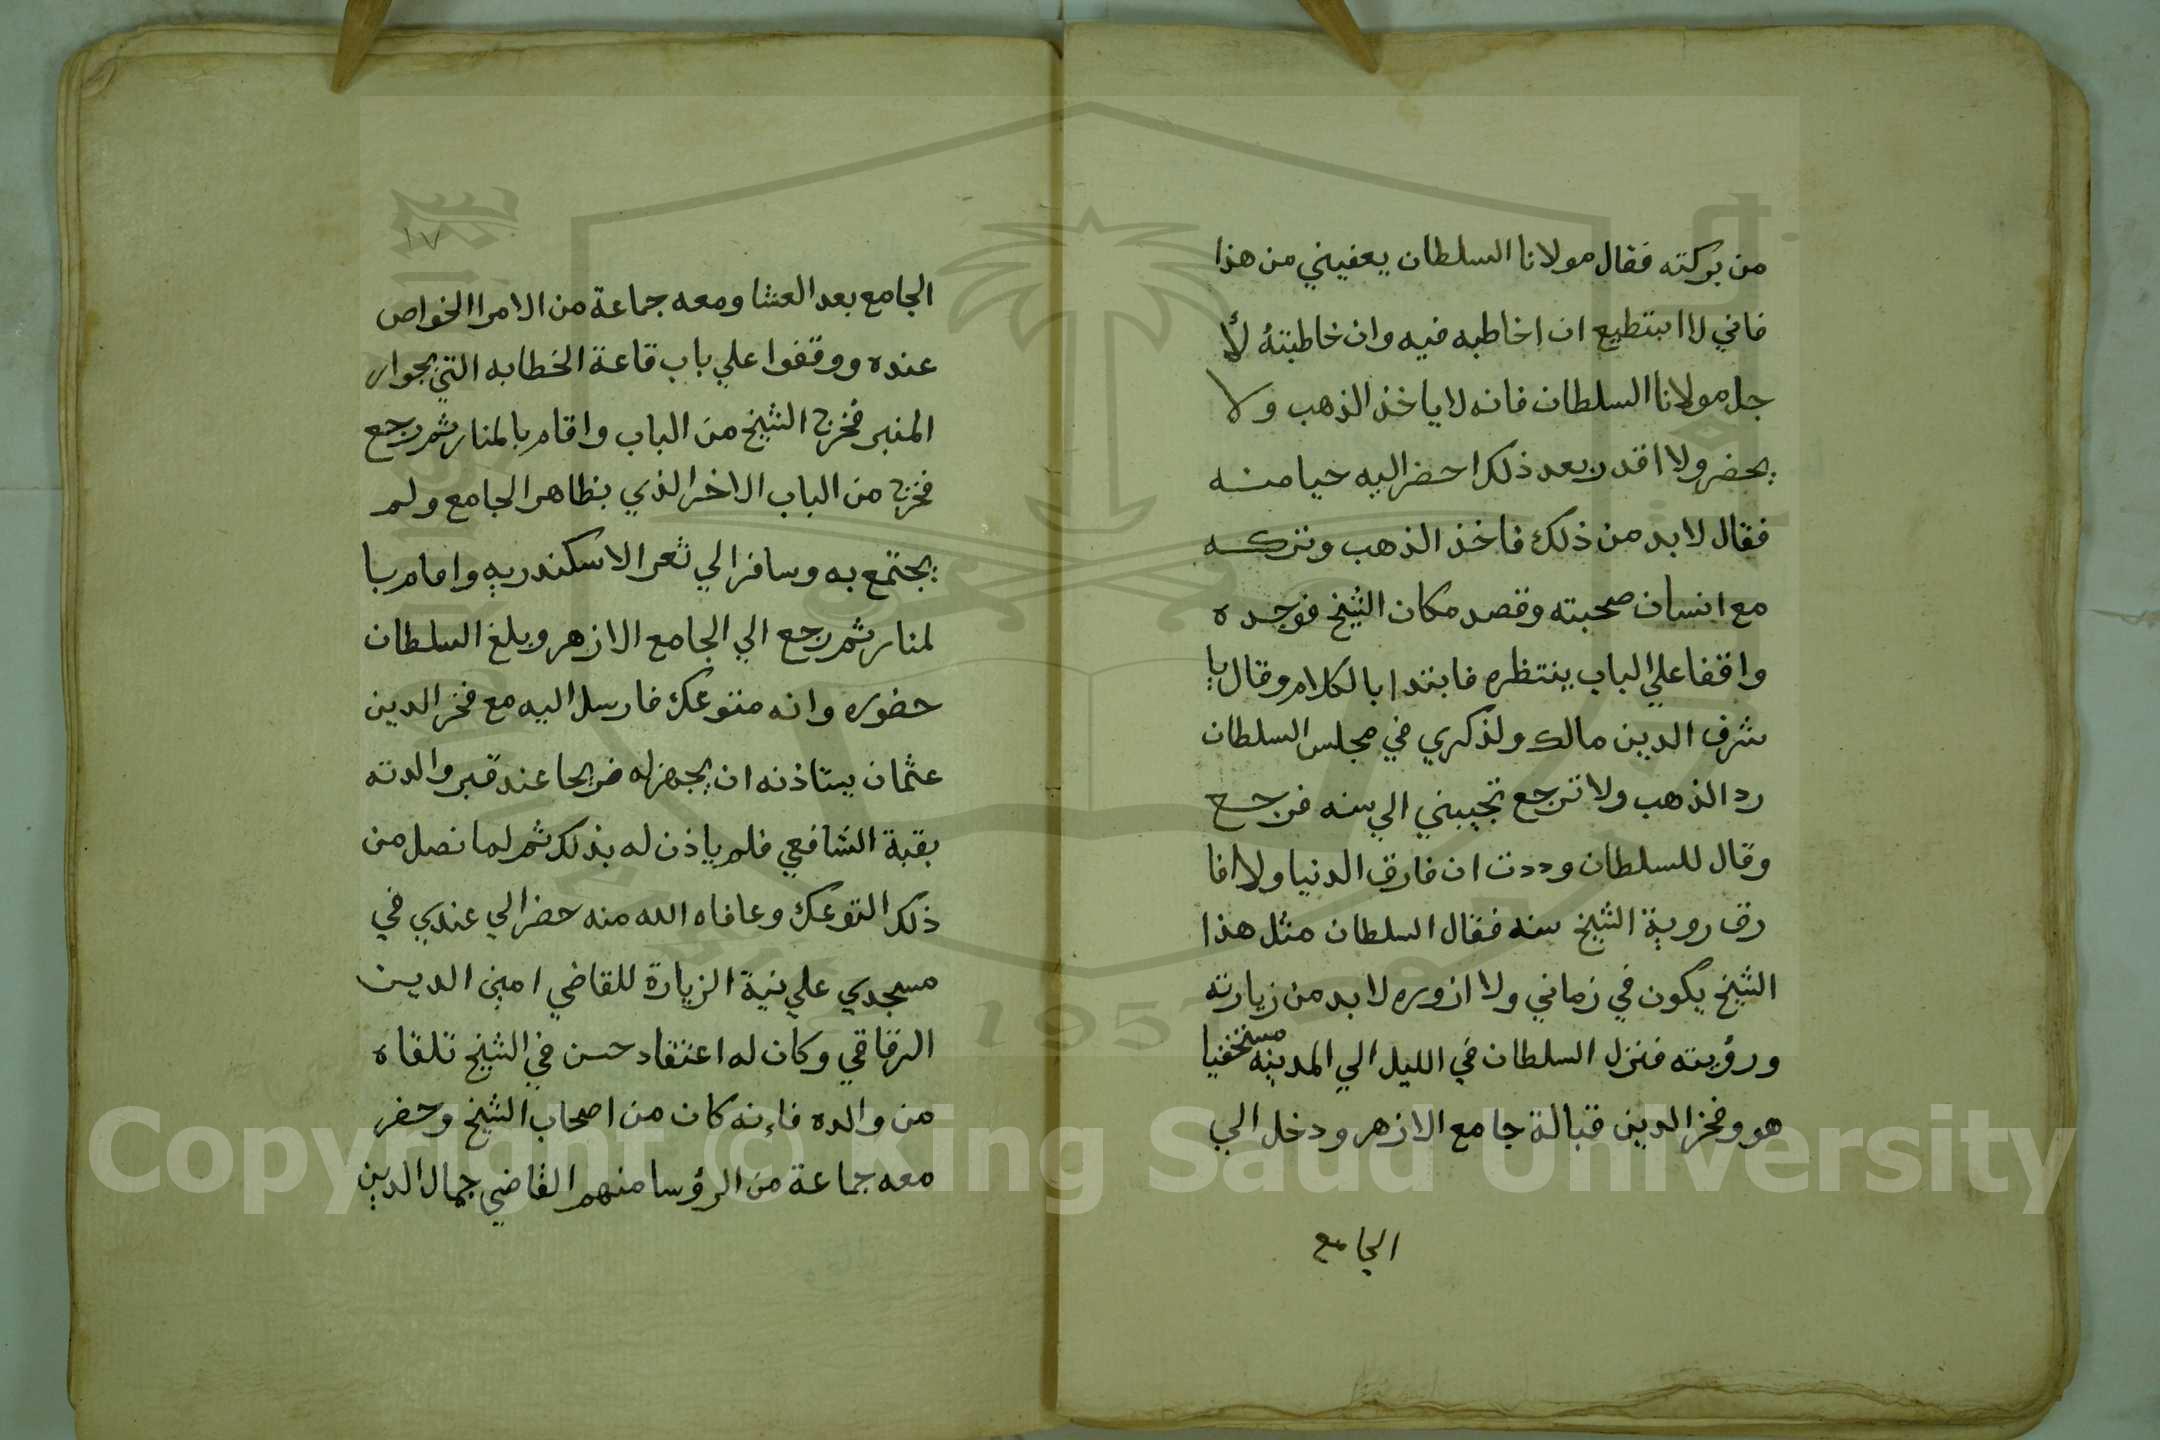 من بركته فقال مولانا السلطان يعفيني من هذا
فاني لا استطيع ان اخاطبه فيه وان خاطبته لأ
جل مولانا السلطان فانه لا ياخذ الذهب ولا
يحضر ولا اقدر بعد ذلك احضر اليه حيا منه
فقال لا بد من ذلك فاخذ الذهب وتركه
مع انسان صحبته وقصد مكان الشيخ فوجده
واقفا علي الباب ينتظره فابتدا بالكلام وقال يا
شرف الدين مالك ولذكري في مجلس السلطان
رد الذهب ولا ترجع تجيبني الي سنه فرجع
وقال للسلطان وددت ان فارق الدنيا ولا افا
رق روية الشيخ سنه فقال السلطان مثل هذا
الشيخ يكون في زماني ولا ازوره لا بد من زيارته
ورؤيته فنزل السلطان في الليل الي المدينه مستخفيا
هو وفخر الدين قبالة جامع الازهر ودخل الي
الجامع
١٧
الجامع بعد العشا ومعه جماعة من الامرا الخواص
عنده ووقفوا علي باب قاعة الخطابه التي بجوار
المنبر فخرج الشيخ من الباب واقام بالمنار ثم رجع
فخرج من الباب الاخر الذي بظاهر الجامع ولم
يجتمع به وسافر الي ثغر الاسكندريه واقام با
لمنار ثم رجع الي الجامع الازهر وبلغ السلطان
حضوره وانه متوعك فارسل اليه مع فخر الدين
عثمان يستاذنه ان يجهز له ضريحا عند قبر والدته
بقبة الشافعي فلم ياذن له بذلك ثم لما نصل من
ذلك التوعك وعافاه الله منه حضر الي عندي في
مسجدي علي نية الزيارة للقاضي امين الدين
الرقاقي وكان له اعتقاد حسن في الشيخ تلقاه
من والده فإنه كان من اصحاب الشيخ وحضر
معه جماعة من الرؤسا منهم القاضي جمال الدين
Copyright © King Saud University
1957